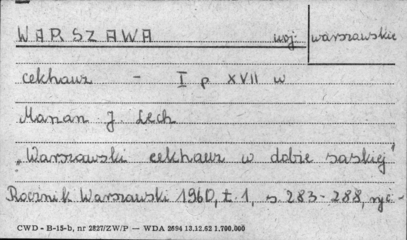 WARSZAWA woj. warszawskie
cekhauz - I p XVII w
Marian J. Lech
„Warszawski cekhauz w dobie saskiej"
Rocznik Warszawski 1960, t. 1, s. 283-288, ryc.-
CWD - B-15-b, nr 2827/ZW/P — WDA 2694 13.12.62 1.700.000